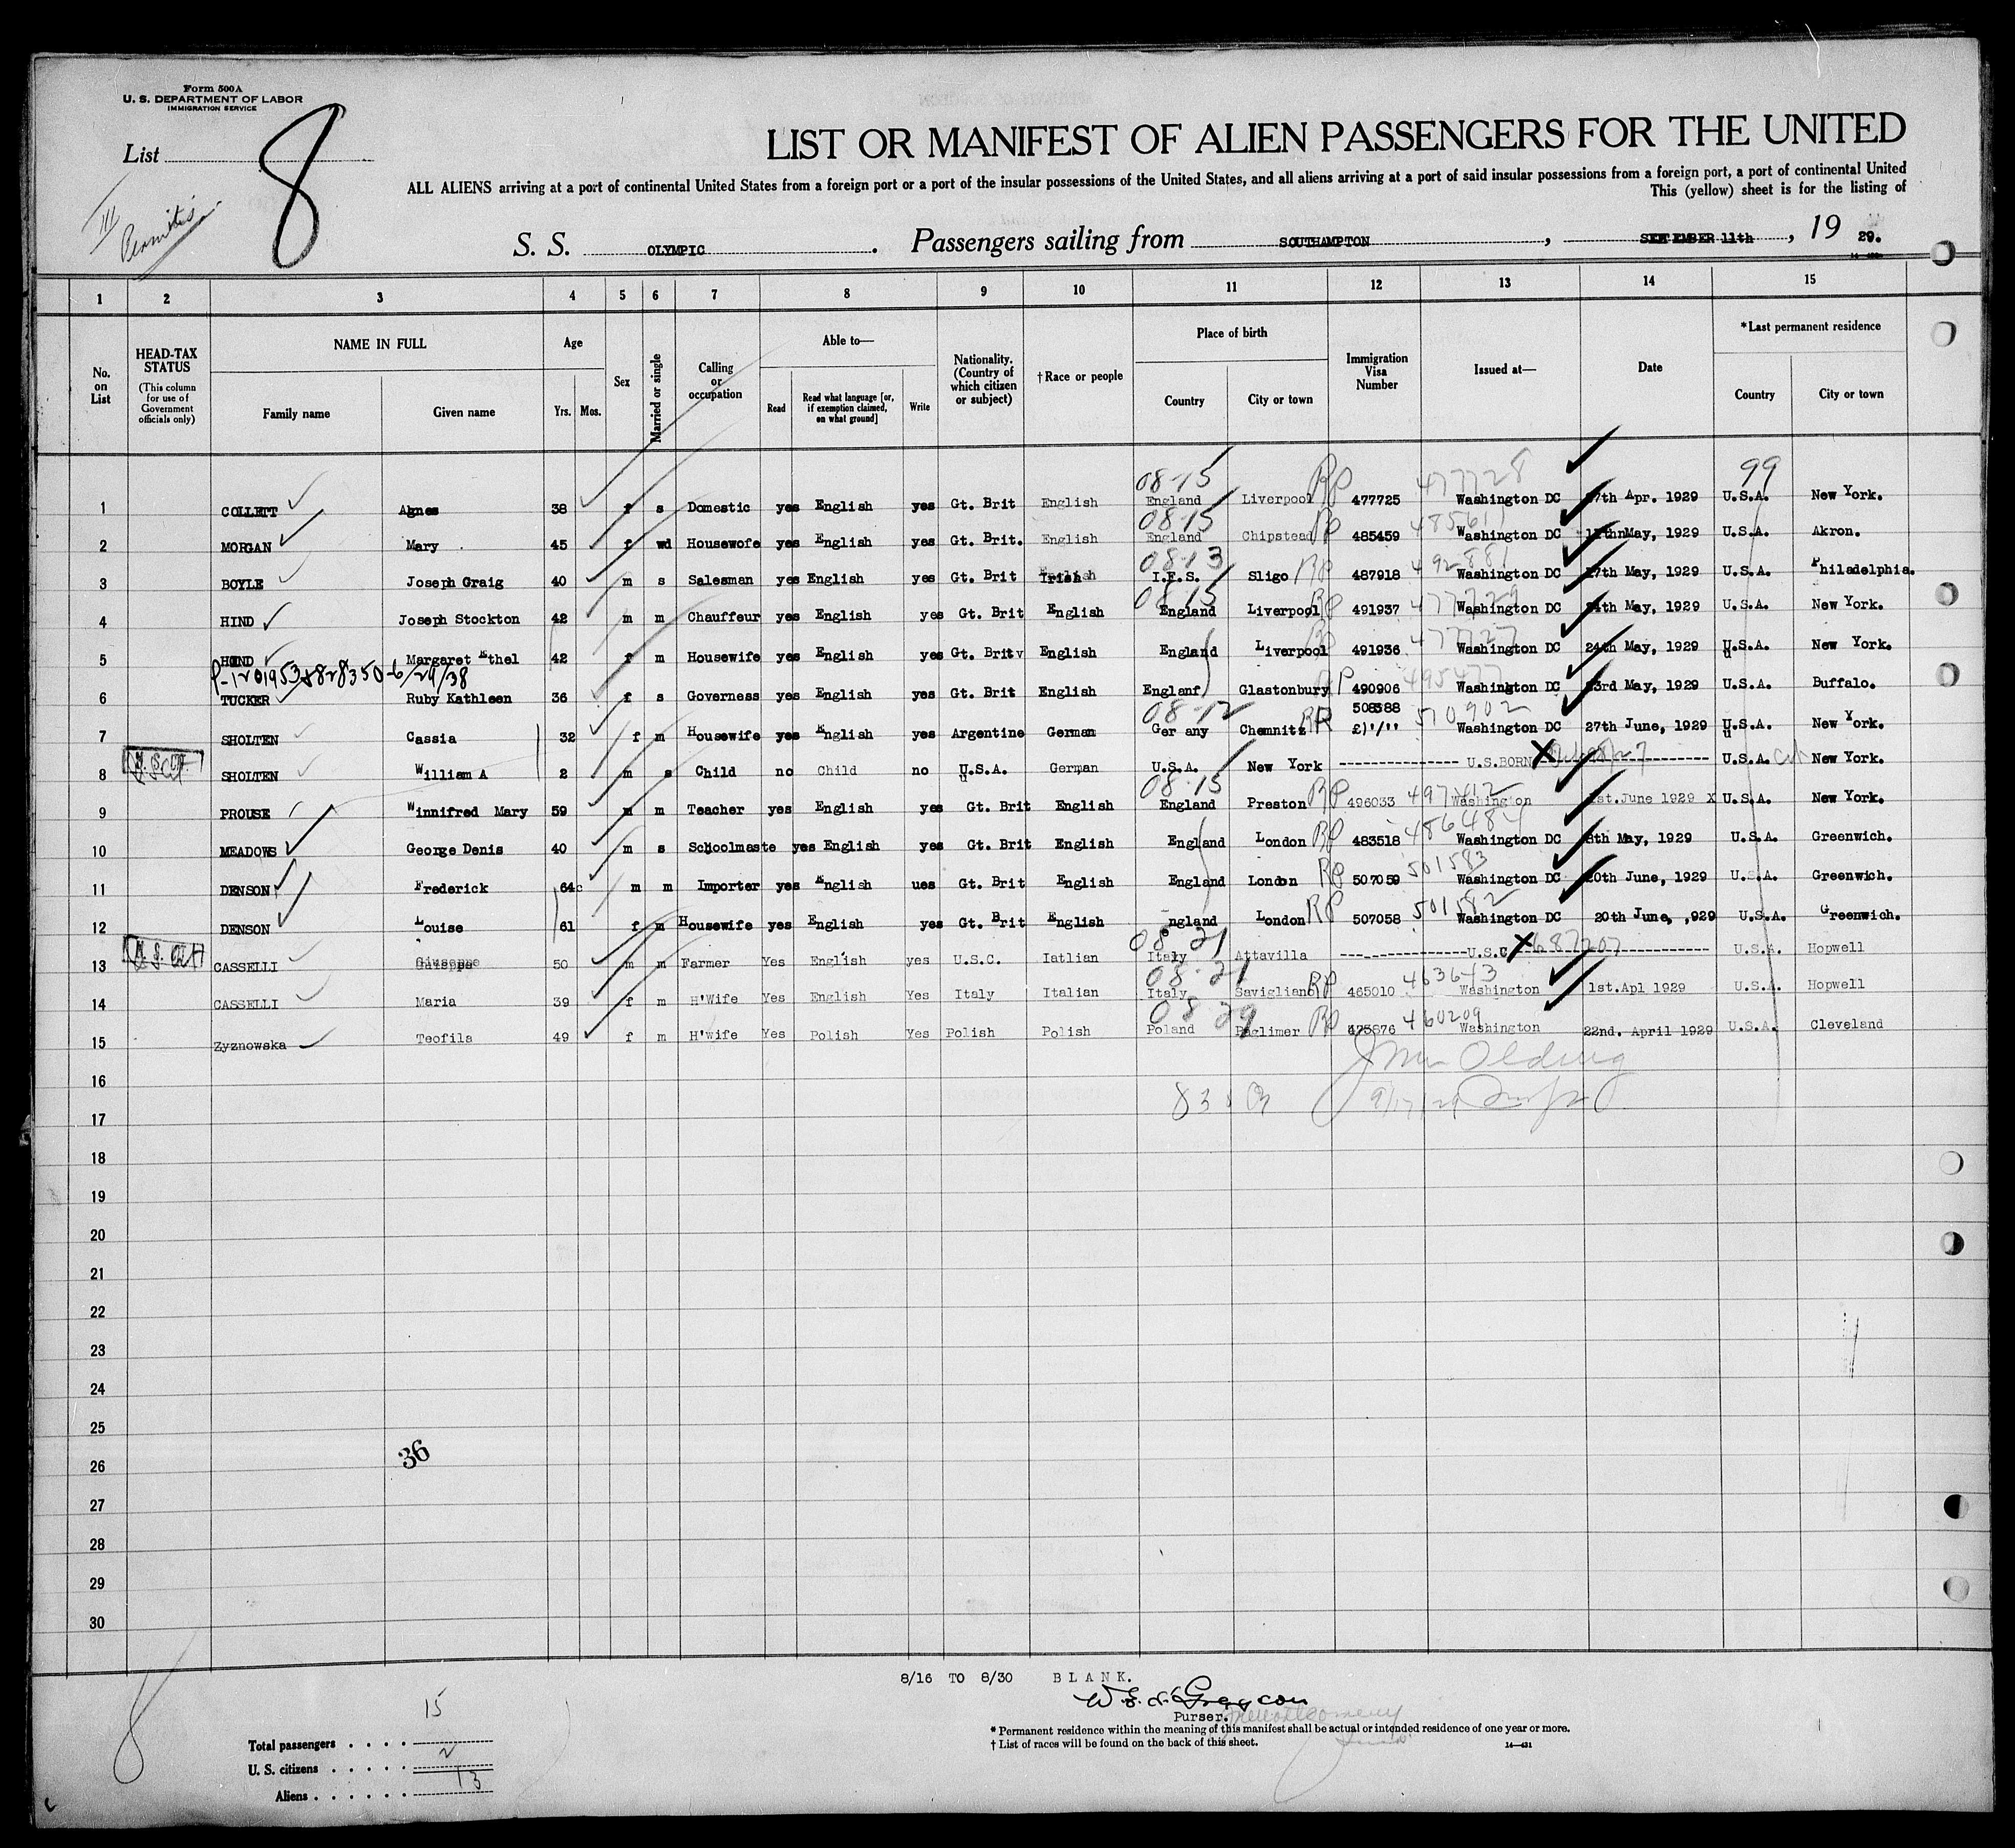 Form 500A
U. S. DEPARTMENT OF LABOR
IMMIGRATION SERVICE
List 8
III
Permits
LIST OR MANIFEST OF ALIEN PASSENGERS FOR THE UNITED
ALL ALIENS arriving at a port of continental United States from a foreign port or a port of the insular possessions of the United States, and all aliens arriving at a port of said insular possessions from a foreign port, a port of continental United
This (yellow) sheet is for the listing of
S. S. OLYMPIC. Passengers sailing from SOUTHAMPTON, SEPTEMBER 11th, 19 29.
1 2 3 4 5 6 7 8 9 10 11 12 13 14 15
No. on List
HEAD-TAX STATUS
(This column for use of Government officials only)
NAME IN FULL
Family name Given name
Age
Yrs. Mos.
Sex
Married or single
Calling or occupation
Able to—
Read Read what language [or, if exemption claimed, on what ground] Write
Nationality. (Country of which citizen or subject)
†Race or people
Place of birth
Country City or town
Immigration Visa Number
Issued at—
Date
*Last permanent residence
Country City or town
08-15 477728 99
1 COLLETT Agnes 38 f s Domestic yes English yes Gt. Brit English England Liverpool RP 477725 Washington DC 17th Apr. 1929 U.S.A. New York.
08-15
2 MORGAN Mary 45 f wd Housewofe yes English yes Gt. Brit. English England Chipstead RP 485459 Washington DC May, 1929 U.S.A. Akron.
08-13 492881
3 BOYLE Joseph Graig 40 m s Salesman yes English yes Gt. Brit Irish I.F.S. Sligo RP 487918 Washington DC 17th May, 1929 U.S.A. Philadelphia.
08-15
4 HIND Joseph Stockton 42 m m Chauffeur yes English yes Gt. Brit English England Liverpool RP 491937 Washington DC 24th May, 1929 U.S.A. New York.
477727
5 HIND Margaret Ethel 42 f m Housewife yes English yes Gt. Britv English England Liverpool 491936 Washington DC 24th May, 1929 U.S.A. New York.
6/29/38
6 TUCKER Ruby Kathleen 36 f s Governess yes English yes Gt. Brit English Englanf Glastonbury RP 490906 Washington DC 23rd May, 1929 U.S.A. Buffalo.
08-12 508388 510902
7 SHOLTEN Cassia 32 f m Housewife yes English yes Argentine German Ger any Chemnitz RP Washington DC 27th June, 1929 U.S.A. New York.
8 U.S. Cit SHOLTEN William A 2 m s Child no Child no U.S.A. German U.S.A. New York U.S.BORN X U.S.A. New York.
08-15 497412
9 PROUSE Winnifred Mary 59 m m Teacher yes English yes Gt. Brit English England Preston RP 496033 Washington 1st.June 1929 X U.S.A. New York.
486484
10 MEADOWS George Denis 40 m s Schoolmaste yes English yes Gt. Brit English England London RP 483518 Washington DC 8th May, 1929 U.S.A. Greenwich.
501583
11 DENSON Frederick 64 m m Importer yes English ues Gt. Brit English England London RP 507059 Washington DC 20th June, 1929 U.S.A. Greenwich.
501582
12 DENSON Louise 61 f m Housewife yes English yes Gt. Brit English England London RP 507058 Washington DC 20th June, ,929 U.S.A. Greenwich.
08-21
13 U.S. Cit CASSELLI Giuseppe 50 m m Farmer Yes English yes U.S.C. Iatlian Italy Attavilla U.S.C X 687207 U.S.A. Hopwell
08-21
14 CASSELLI Maria 39 f m H'Wife Yes English Yes Italy Italian Italy Savigliano RP 465010 Washington 1st.Apl 1929 U.S.A. Hopwell
08-29 460209
15 Zyznowska Teofila 49 f m H'wife Yes Polish Yes Polish Polish Poland RP Washington 22nd. April 1929 U.S.A. Cleveland
16
17 9/17/29
18
19
20
21
22
23
24
25
26 36
27
28
29
30
8/16 TO 8/30 BLANK.
Purser.
* Permanent residence within the meaning of this manifest shall be actual or intended residence of one year or more.
† List of races will be found on the back of this sheet.
14—431
8
Total passengers . . . . 15
U. S. citizens . . . . . 2
Aliens . . . . . . 13